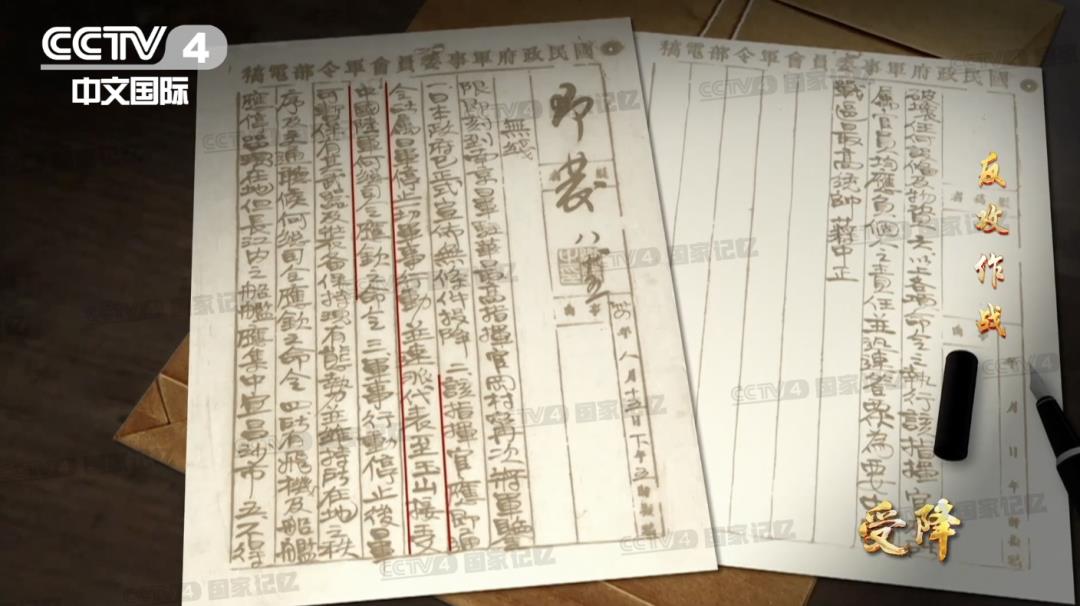 CCTV 4
中文国际
國民政府軍事委員會軍令部電稿
即發
年八月十五日下午五時
無綫
限即刻到南京日軍駐華最高指揮官岡村寧次將軍鑒
日本政府已正式宣佈無條件投降二該指揮官應即通
令所屬日軍停止一切軍事行動並速派代表至玉山接受
中國陸軍何總司令應欽之命令三軍事行動停止後日軍
可暫保有其武器及裝備保持現有態勢並維持所在地之秩
序及交通聽候何總司令應欽之命令四所有飛機及船艦
應停留現在地但長江內之船艦應集中宜昌沙市五不得
國民政府軍事委員會軍令部電稿
年月日午時
破壞任何設備及物資六以上各項命令之執行該指揮官
屬官員均應負個人之責任並迅速答覆為要中
戰區最高統帥蔣中正
反攻作战
受降
CCTV4 国家记忆